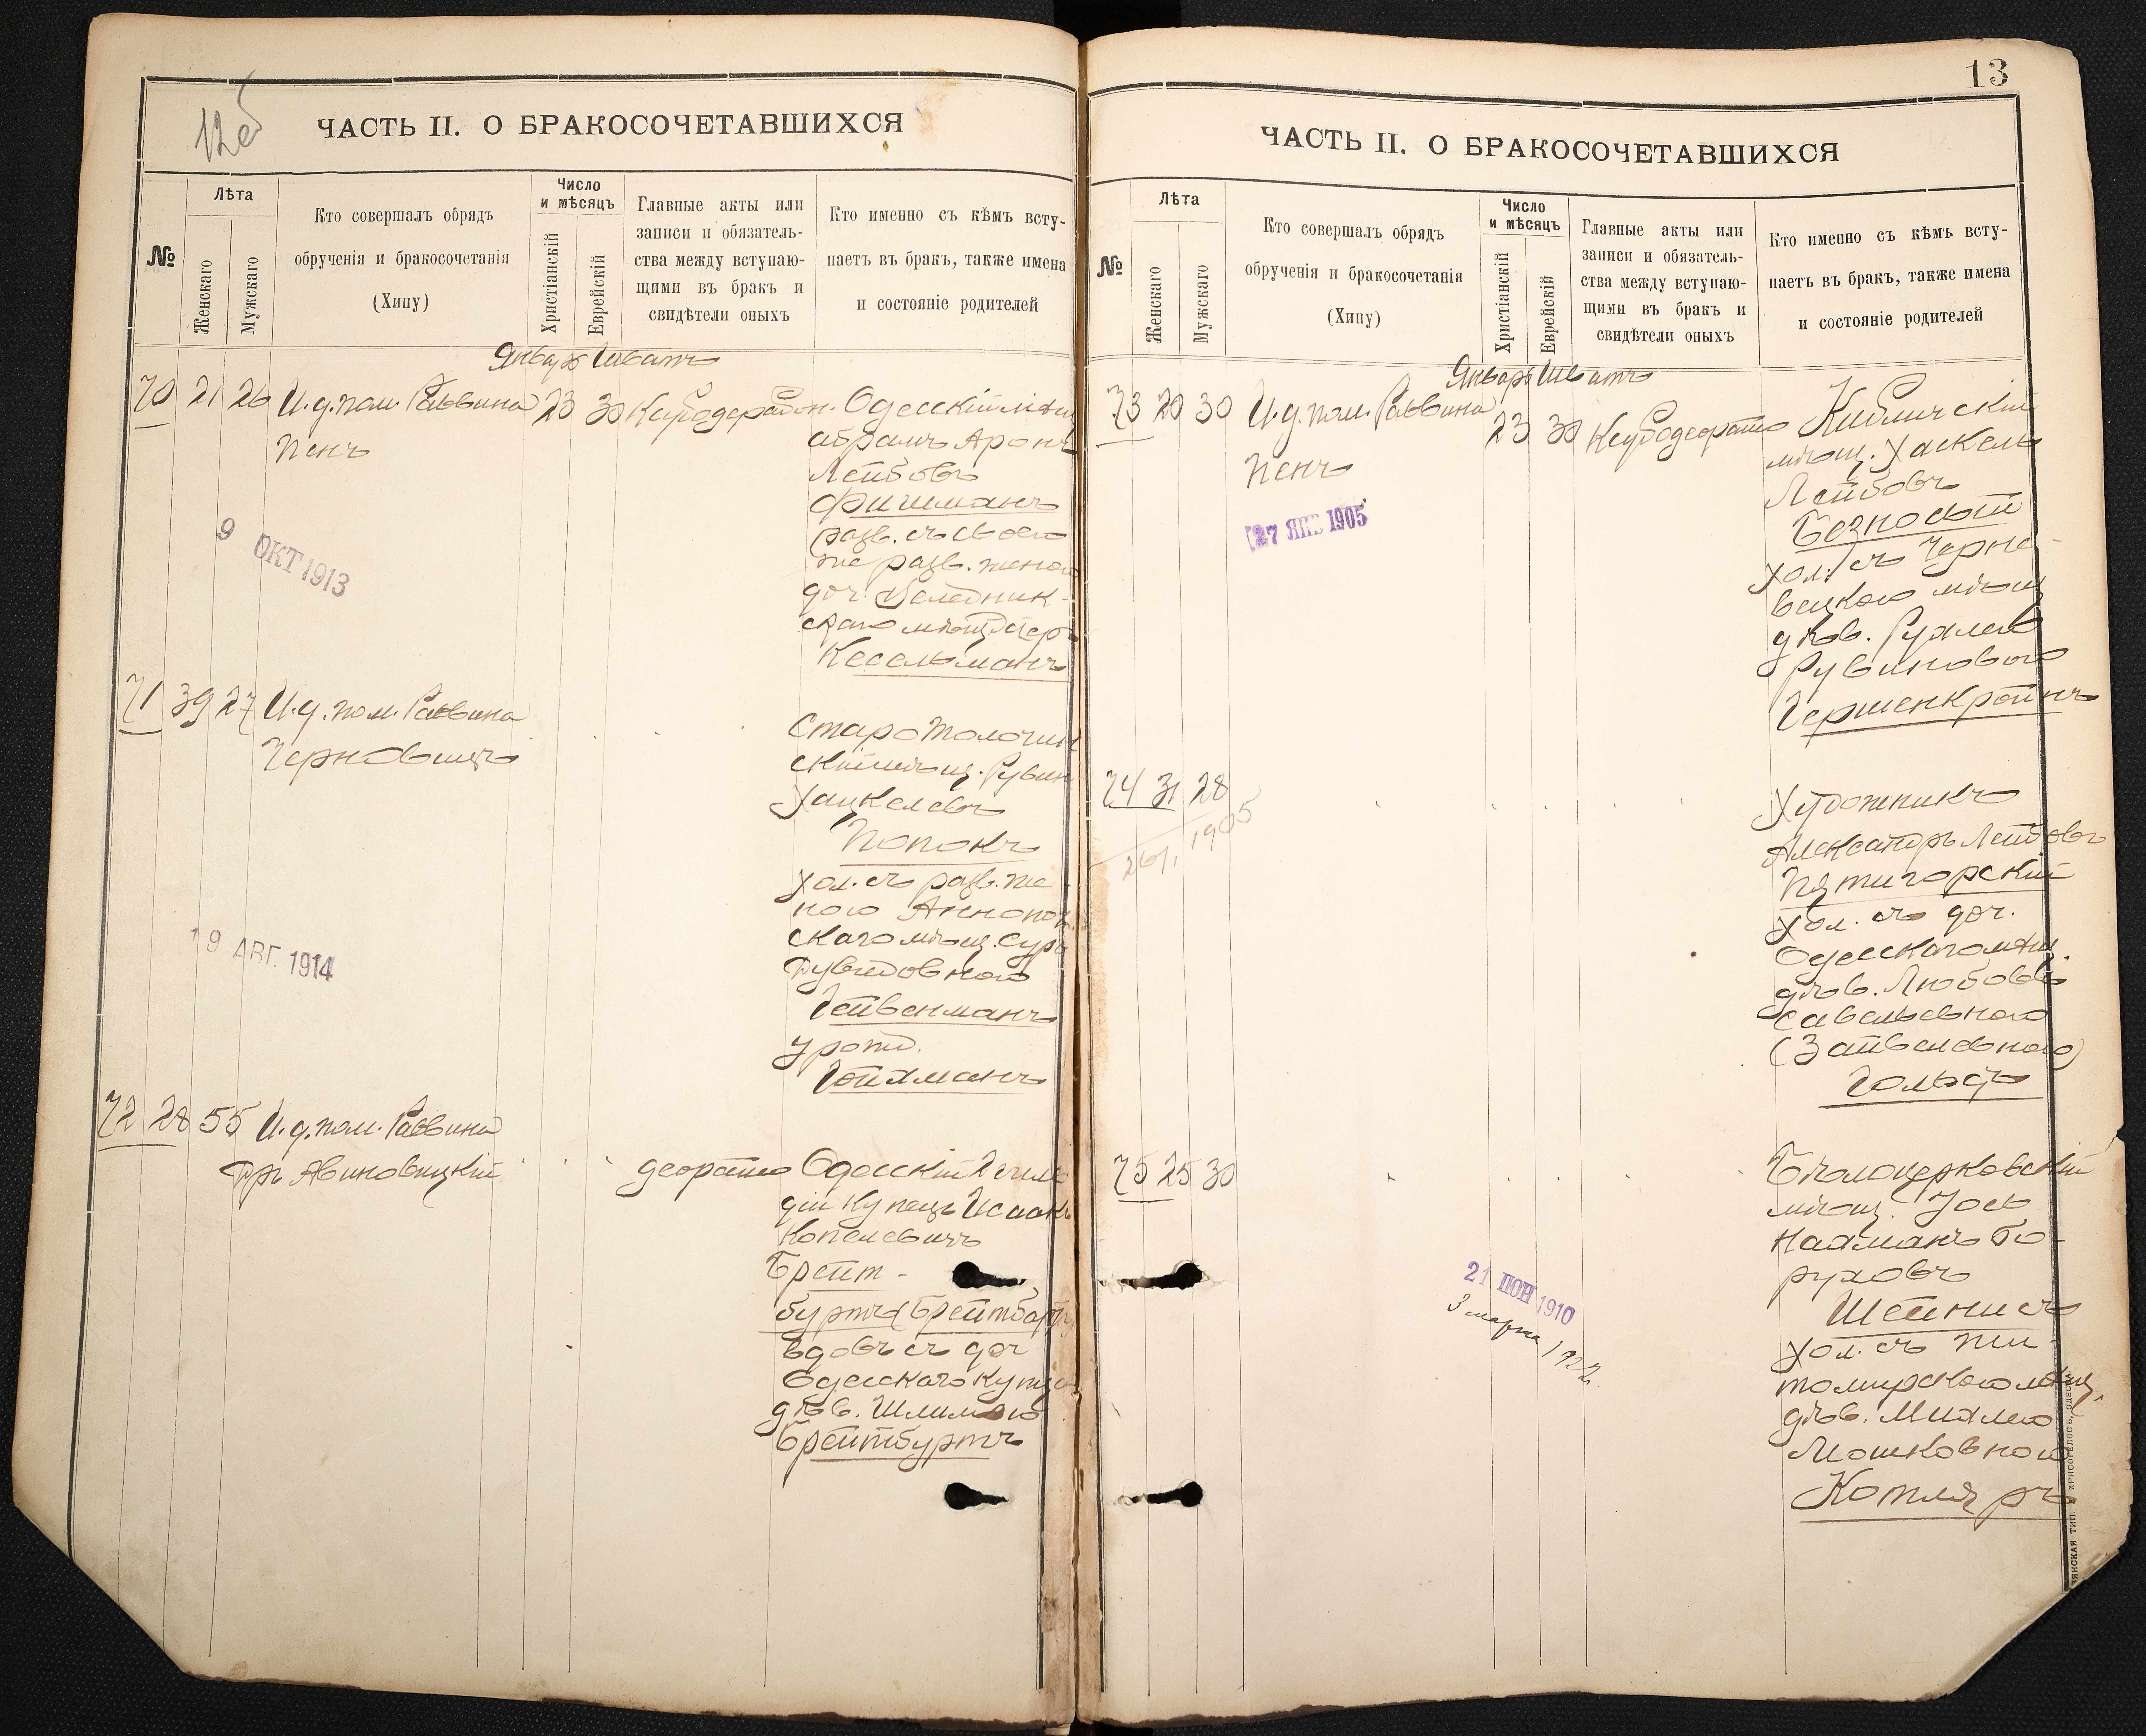 12об
ЧАСТЬ II. О БРАКОСОЧЕТАВШИХСЯ
№
Лѣта
Женскаго
Мужскаго
Кто совершалъ обрядъ
обрученія и бракосочетанія
(Хипу)
Число
и мѣсяцъ
Христіанскій
Еврейскій
Главные акты или
записи и обязатель-
ства между вступаю-
щими въ бракъ и
свидѣтели оныхъ
Кто именно съ кѣмъ всту-
паетъ въ бракъ, также имена
и состояніе родителей
Январь Шватъ
70 21 26 И.д. пом. Раввина 23 30 Одесскій мѣщ
Пенъ
Абрамъ Аронъ
Лейбовъ
Фишманъ
разв. съ своею
же разв. женою
доч.
Кесельманъ
9 ОКТ 1913
71 39 27 И.д. пом. Раввина
Черновицъ
Старотолочин
скій мѣщ. Рувин
Хацкелевъ
Попокъ
хол. съ разв. же-
ною Аннопол
скаго мѣщ. Сура
Дувидовною
Гейвенманъ
урожд.
Гойхманъ
19 АВГ. 1914
72 28 55 И.д. пом. Раввина
Дръ Авиновицкій
Одесскій 2 гиль
діи купецъ Исаакъ
Копелевичъ
Брейт-
буртъ (Брейтбартъ)
вдовъ съ доч
Одесскаго купца
дѣв. Шлимою
Брейтбуртъ
13
ЧАСТЬ II. О БРАКОСОЧЕТАВШИХСЯ
№
Лѣта
Женскаго
Мужскаго
Кто совершалъ обрядъ
обрученія и бракосочетанія
(Хипу)
Число
и мѣсяцъ
Христіанскій
Еврейскій
Главные акты или
записи и обязатель-
ства между вступаю-
щими въ бракъ и
свидѣтели оныхъ
Кто именно съ кѣмъ всту-
паетъ въ бракъ, также имена
и состояніе родителей
Январь Шватъ
73 20 30 И.д. пом. Раввина 23 30 Кибличскій
Пенъ
мѣщ. Хаскель
Лейбовъ
Безносый
хол. съ Черно-
вецкого мѣщ
дѣв. Рухлею
Рувиновою
Гершенкройнъ
27 ЯНВ 1905
74 31 28
26/I 1905
Художникъ
Александръ Лейбовъ
Пятигорскій
хол. съ доч.
Одесскаго мѣщ.
дѣв. Любовью
Савельевною
(Зайвелевною)
Гольдъ
75 25 30
Бѣлоцерковскій
мѣщ. Іось
Нахманъ Бо-
руховъ
Шейнисъ
хол. съ Жи-
томирского мѣщ.
дѣв. Михлею
Мошковною
Котляръ
21 ІЮН 1910
3 марта